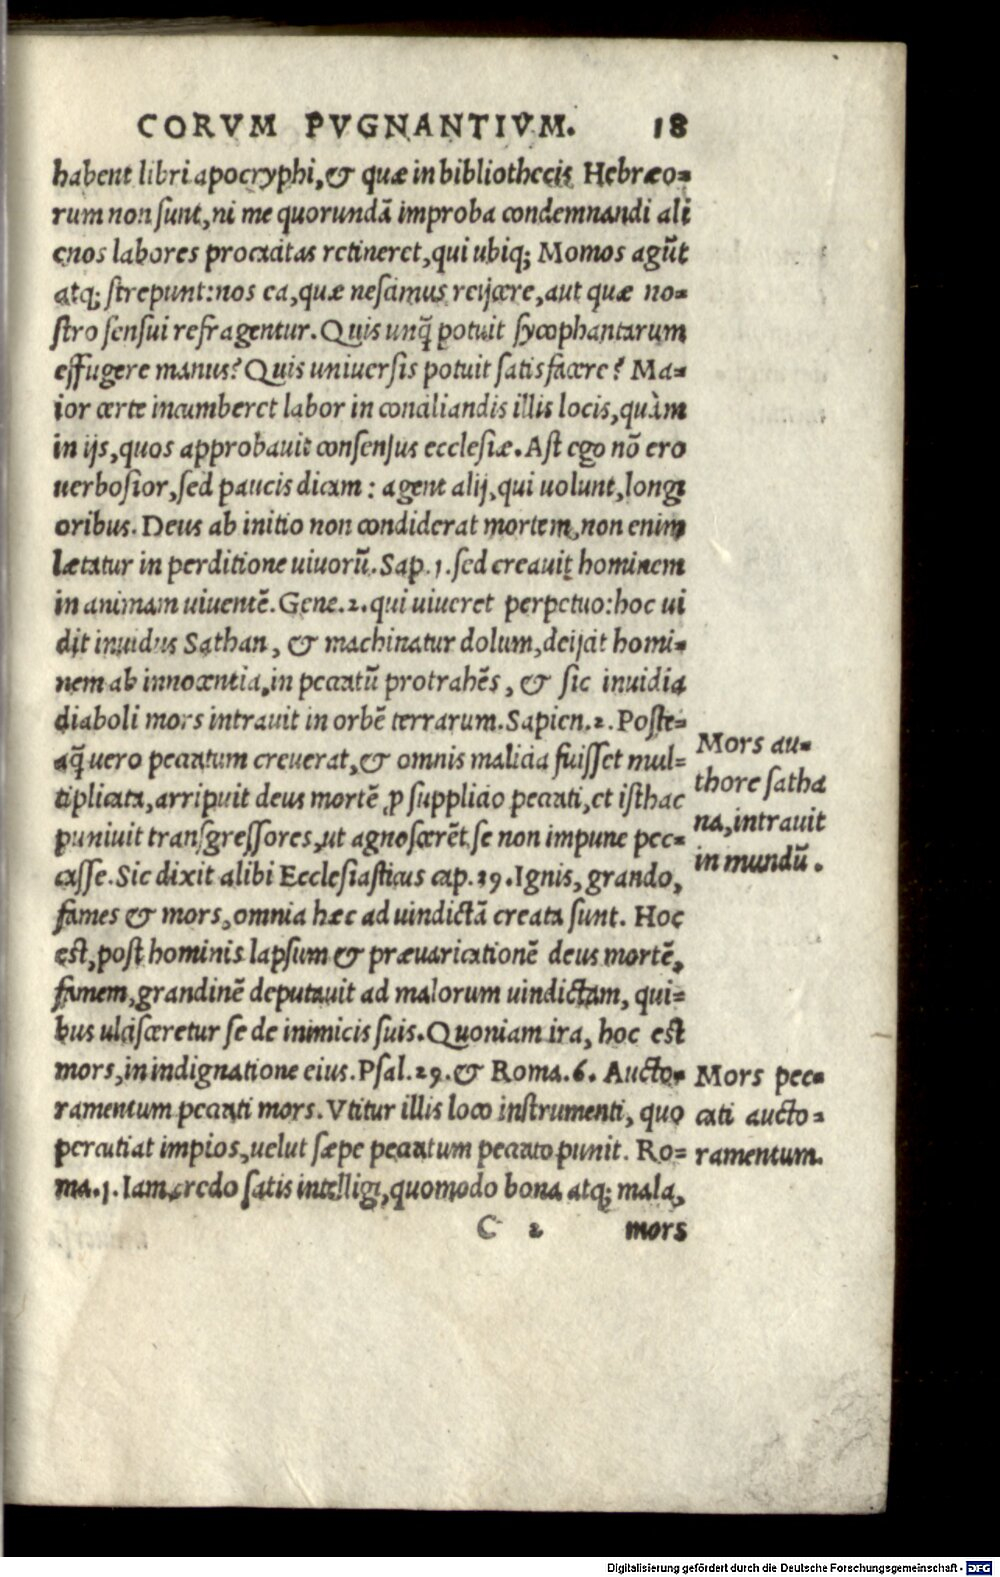 CORVM PVGNANTIVM. 18
habent libri apocryphi, & quæ in bibliothecis Hebræo=
rum non sunt, ni me quorundã improba condemnandi ali
enos labores procacitas retineret, qui ubiq; Momos agũt
atq; strepunt: nos ea, quæ nescimus reijcere, aut quæ no=
stro sensui refragentur. Quis unq̃ potuit sycophantarum
effugere manus? Quis uniuersis potuit satisfacere? Ma=
ior certe incumberet labor in conciliandis illis locis, quàm
in ijs, quos approbauit consensus ecclesiæ. Ast ego nõ ero
uerbosior, sed paucis dicam: agent alij, qui uolunt, longi
oribus. Deus ab initio non condiderat mortem, non enim
lætatur in perditione uiuorũ. Sap. 1. sed creauit hominem
in animam uiuentẽ. Gene. 2. qui uiueret perpetuo: hoc ui
dit inuidus Sathan, & machinatur dolum, deijcit homi=
nem ab innocentia, in peccatũ protrahẽs, & sic inuidia
diaboli mors intrauit in orbẽ terrarum. Sapien. 2. Poste=
aq̃ uero peccatum creuerat, & omnis malicia fuisset mul=
tiplicata, arripuit deus mortẽ ꝓ supplicio peccati, et isthac
puniuit transgressores, ut agnoscerẽt se non impune pec=
casse. Sic dixit alibi Ecclesiasticus cap. 39. Ignis, grando,
fames & mors, omnia hæc ad uindictã creata sunt. Hoc
est, post hominis lapsum & præuaricationẽ deus mortẽ,
famem, grandinẽ deputauit ad malorum uindictam, qui=
bus ulcisceretur se de inimicis suis. Quoniam ira, hoc est
mors, in indignatione eius. Psal. 29. & Roma. 6. Aucto=
ramentum peccati mors. Vtitur illis loco instrumenti, quo
percutiat impios, uelut sæpe peccatum peccato punit. Ro=
ma. 1. Iam credo satis intelligi, quomodo bona atq; mala,
C 2 mors
Mors au=
thore satha
na, intrauit
in mundũ.
Mors pec=
cati aucto=
ramentum.
Digitalisierung gefördert durch die Deutsche Forschungsgemeinschaft - DFG